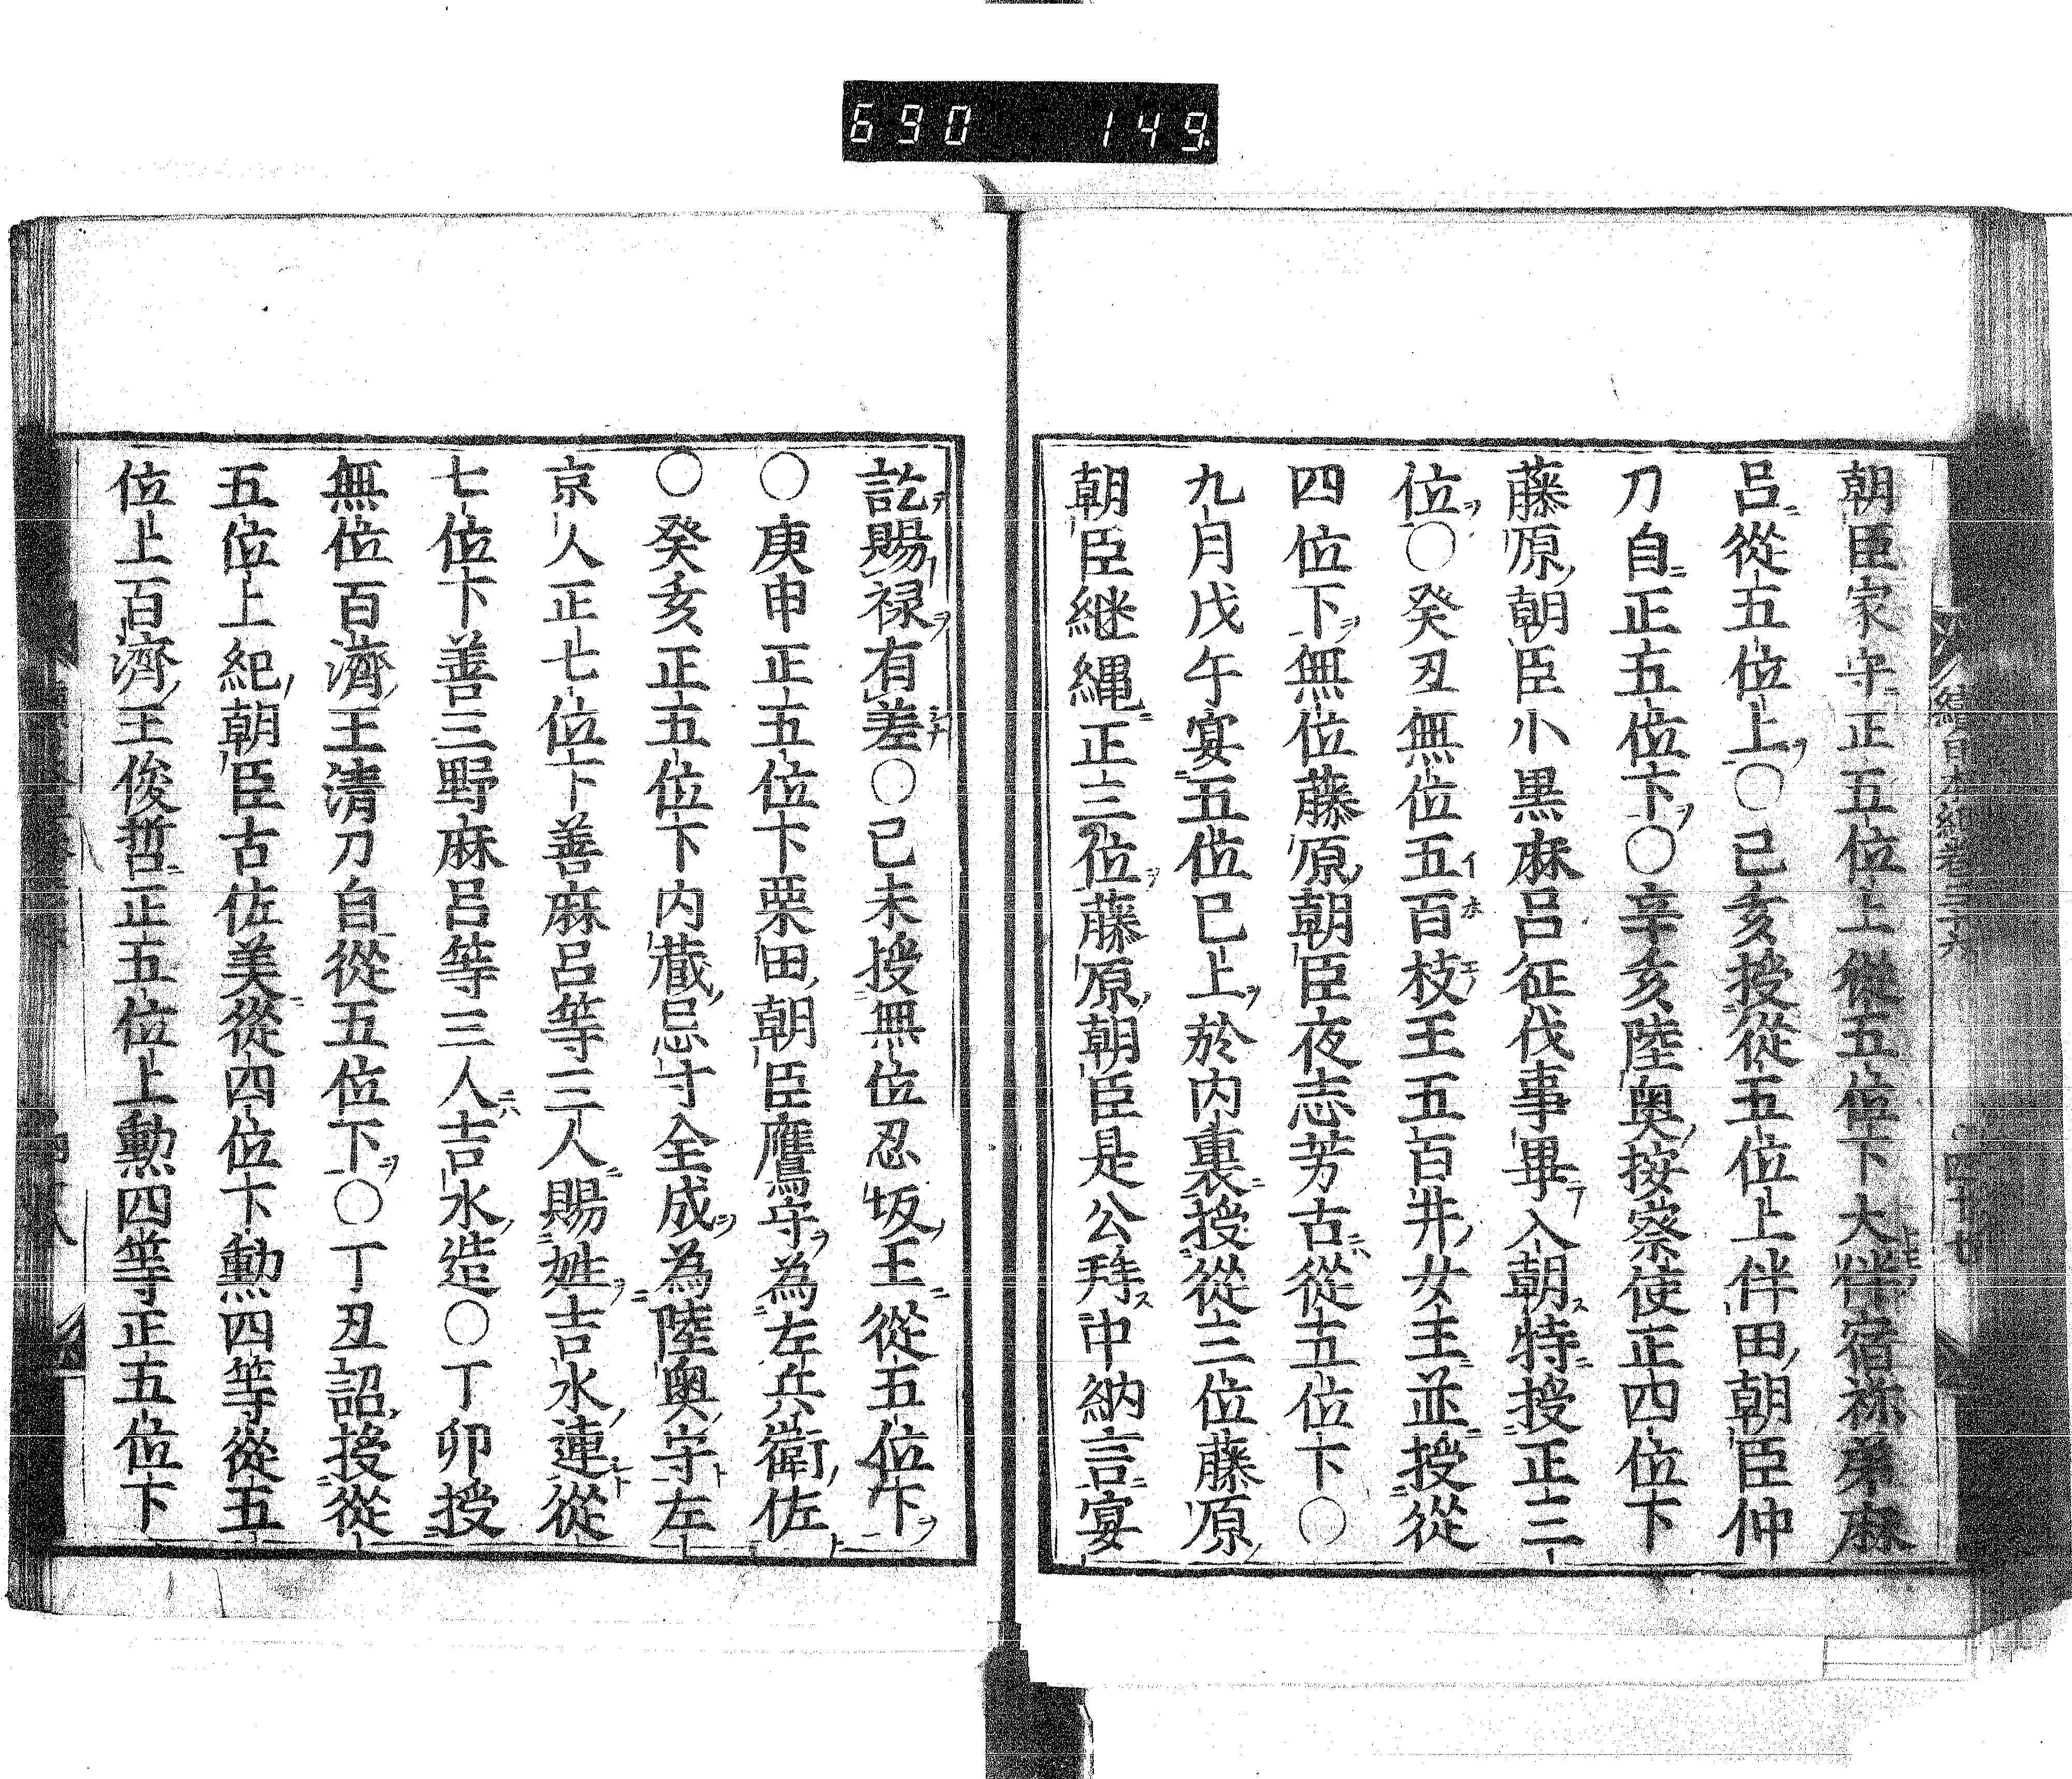 690 149
朝臣家守正五位上從五位下大伴宿祢弟麻
呂從五位上○己亥授從五位上伴田朝臣仲
刀自正五位下○辛亥陸奥按察使正四位下
藤原朝臣小黒麻呂征伐事畢入朝特授正三
位○癸丑無位五百枝王五百井女王並授從
四位下無位藤原朝臣夜志芳古從五位下○
九月戊午宴五位已上於内裏授從三位藤原
朝臣継縄正三位藤原朝臣是公拜中納言宴
訖賜禄有差○己未授無位忍坂王從五位下
○庚申正五位下粟田朝臣鷹守為左兵衛佐
○癸亥正五位下内蔵忌寸全成為陸奥守左
京人正七位下善麻呂等三人賜姓吉水連從
七位下善三野麻呂等三人吉水造○丁卯授
無位百濟王清刀自從五位下○丁丑詔授從
五位上紀朝臣古佐美從四位下勲四等從五
位上百濟王俊哲正五位上勲四等正五位下